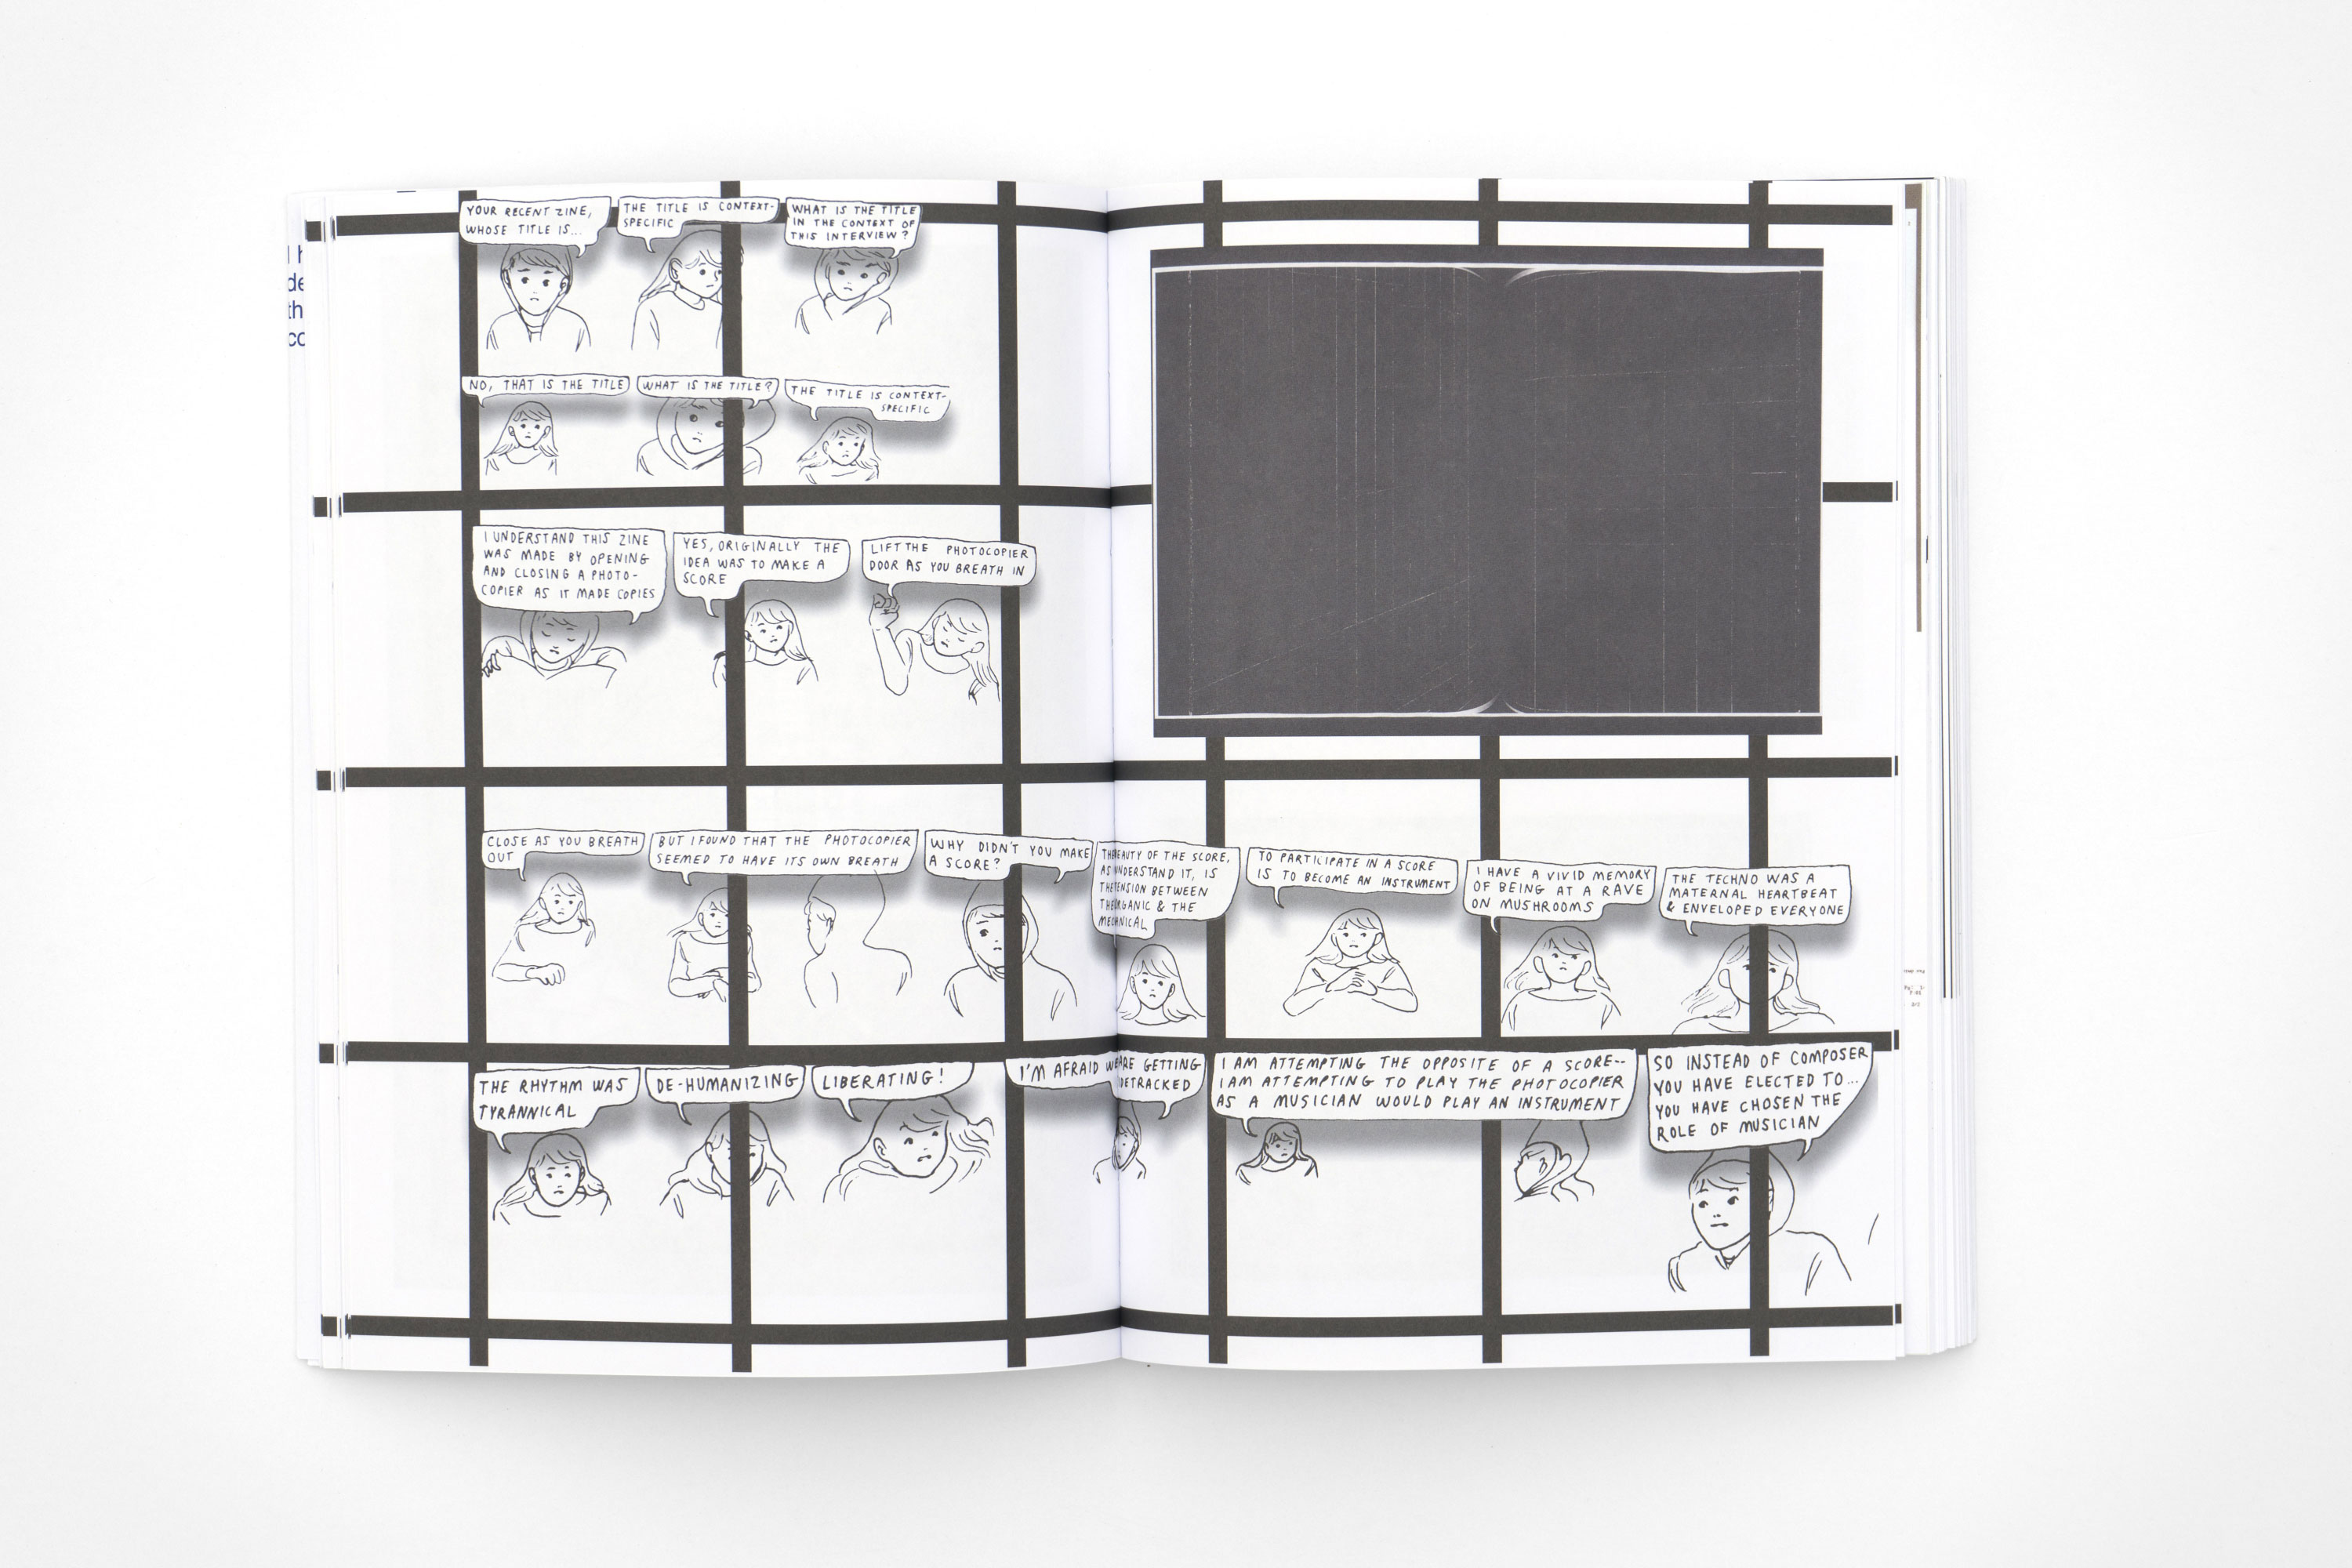 I h
de
th
co
YOUR RECENT ZINE,
WHOSE TITLE IS...
THE TITLE IS CONTEXT-
SPECIFIC
WHAT IS THE TITLE
IN THE CONTEXT OF
THIS INTERVIEW?
NO, THAT IS THE TITLE
WHAT IS THE TITLE?
THE TITLE IS CONTEXT-
SPECIFIC
I UNDERSTAND THIS ZINE
WAS MADE BY OPENING
AND CLOSING A PHOTO-
COPIER AS IT MADE COPIES
YES, ORIGINALLY THE
IDEA WAS TO MAKE A
SCORE
LIFT THE PHOTOCOPIER
DOOR AS YOU BREATH IN
CLOSE AS YOU BREATH
OUT
BUT I FOUND THAT THE PHOTOCOPIER
SEEMED TO HAVE ITS OWN BREATH
WHY DIDN'T YOU MAKE
A SCORE?
THE BEAUTY OF THE SCORE,
AS I UNDERSTAND IT, IS
THE TENSION BETWEEN
THE ORGANIC & THE
MECHNICAL
TO PARTICIPATE IN A SCORE
IS TO BECOME AN INSTRUMENT
I HAVE A VIVID MEMORY
OF BEING AT A RAVE
ON MUSHROOMS
THE TECHNO WAS A
MATERNAL HEARTBEAT
& ENVELOPED EVERYONE
THE RHYTHM WAS
TYRANNICAL
DE-HUMANIZING
LIBERATING!
I'M AFRAID WE ARE GETTING
DETRACKED
I AM ATTEMPTING THE OPPOSITE OF A SCORE--
I AM ATTEMPTING TO PLAY THE PHOTOCOPIER
AS A MUSICIAN WOULD PLAY AN INSTRUMENT
SO INSTEAD OF COMPOSER
YOU HAVE ELECTED TO...
YOU HAVE CHOSEN THE
ROLE OF MUSICIAN